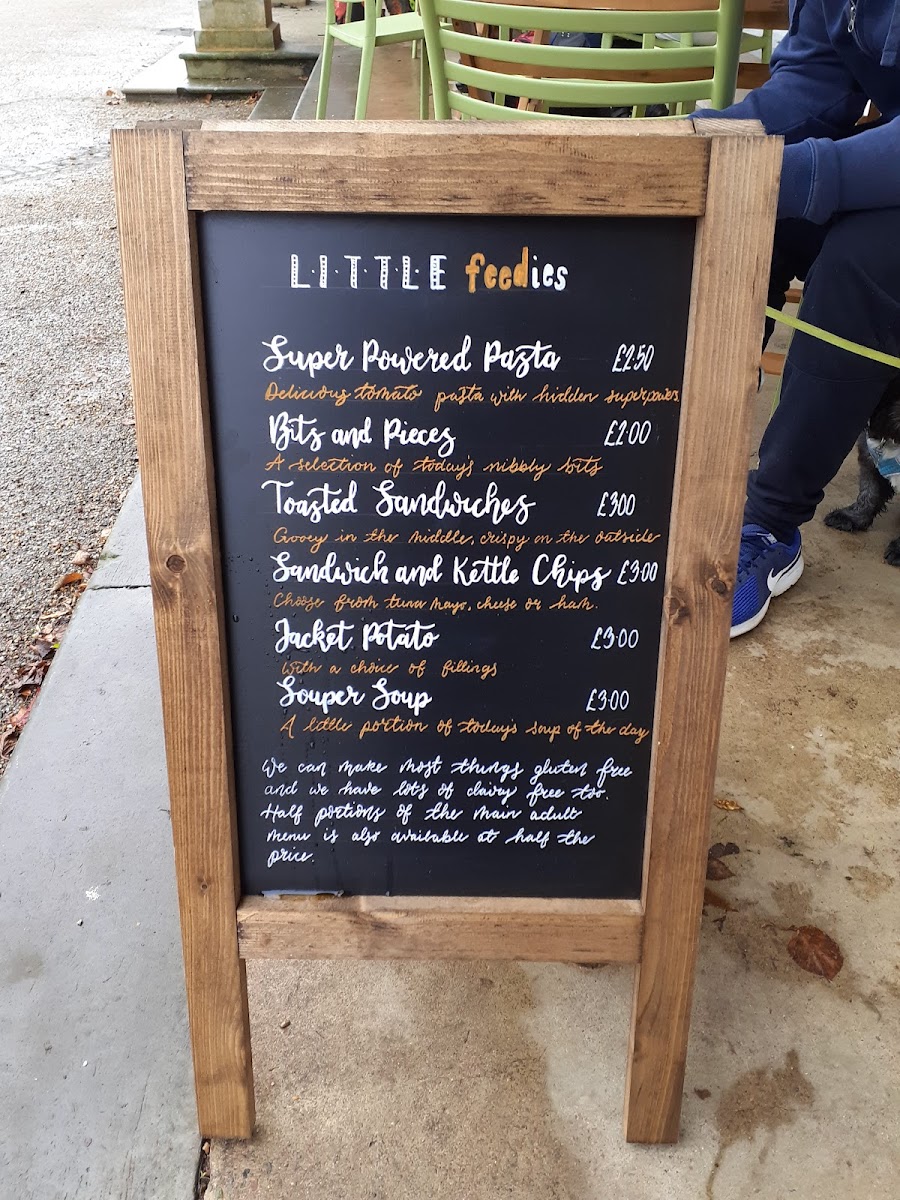 LITTLE feedies
Super Powered Pasta £2.50
Delicious tomato pasta with hidden superpowers
Bits and Pieces £2.00
A selection of today's nibbly bits
Toasted Sandwiches £3.00
Gooey in the middle, crispy on the outside
Sandwich and Kettle Chips £3.00
Choose from tuna mayo, cheese or ham.
Jacket Potato £3.00
With a choice of fillings
Souper Soup £3.00
A little portion of today's soup of the day
We can make most things gluten free
and we have lots of dairy free too.
Half portions of the main adult
menu is also available at half the
price.